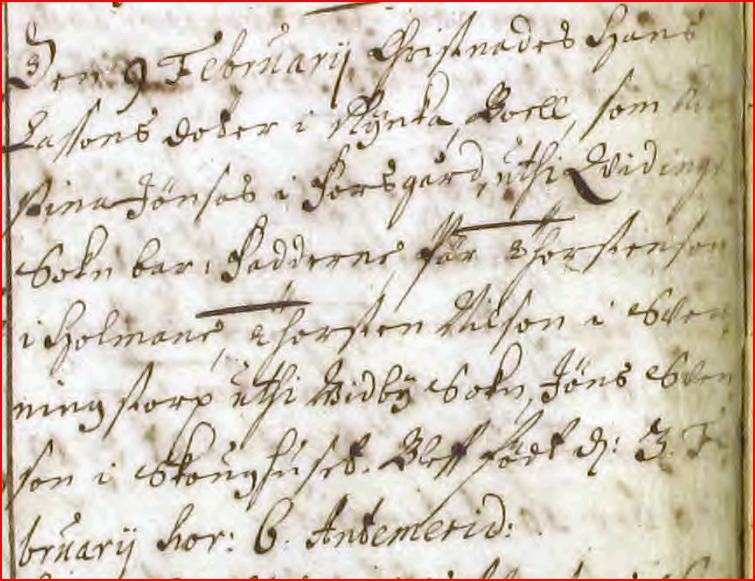 Den 9 Februarij Christnades Hans
Lassons doter i Rÿnka, Boell, som
Stina Jönses i Forsgård, uthi Qvidinge
Sokn bar, Fadderne Pär Thorstenson
i Holmane, Thorsten Nilson i Sven
ningstorp uthi Widbÿ Sokn, Jöns Sven
son i Skoughuset. Bleff född d: 3. Fe
bruarij hor: 6. Antemerid: